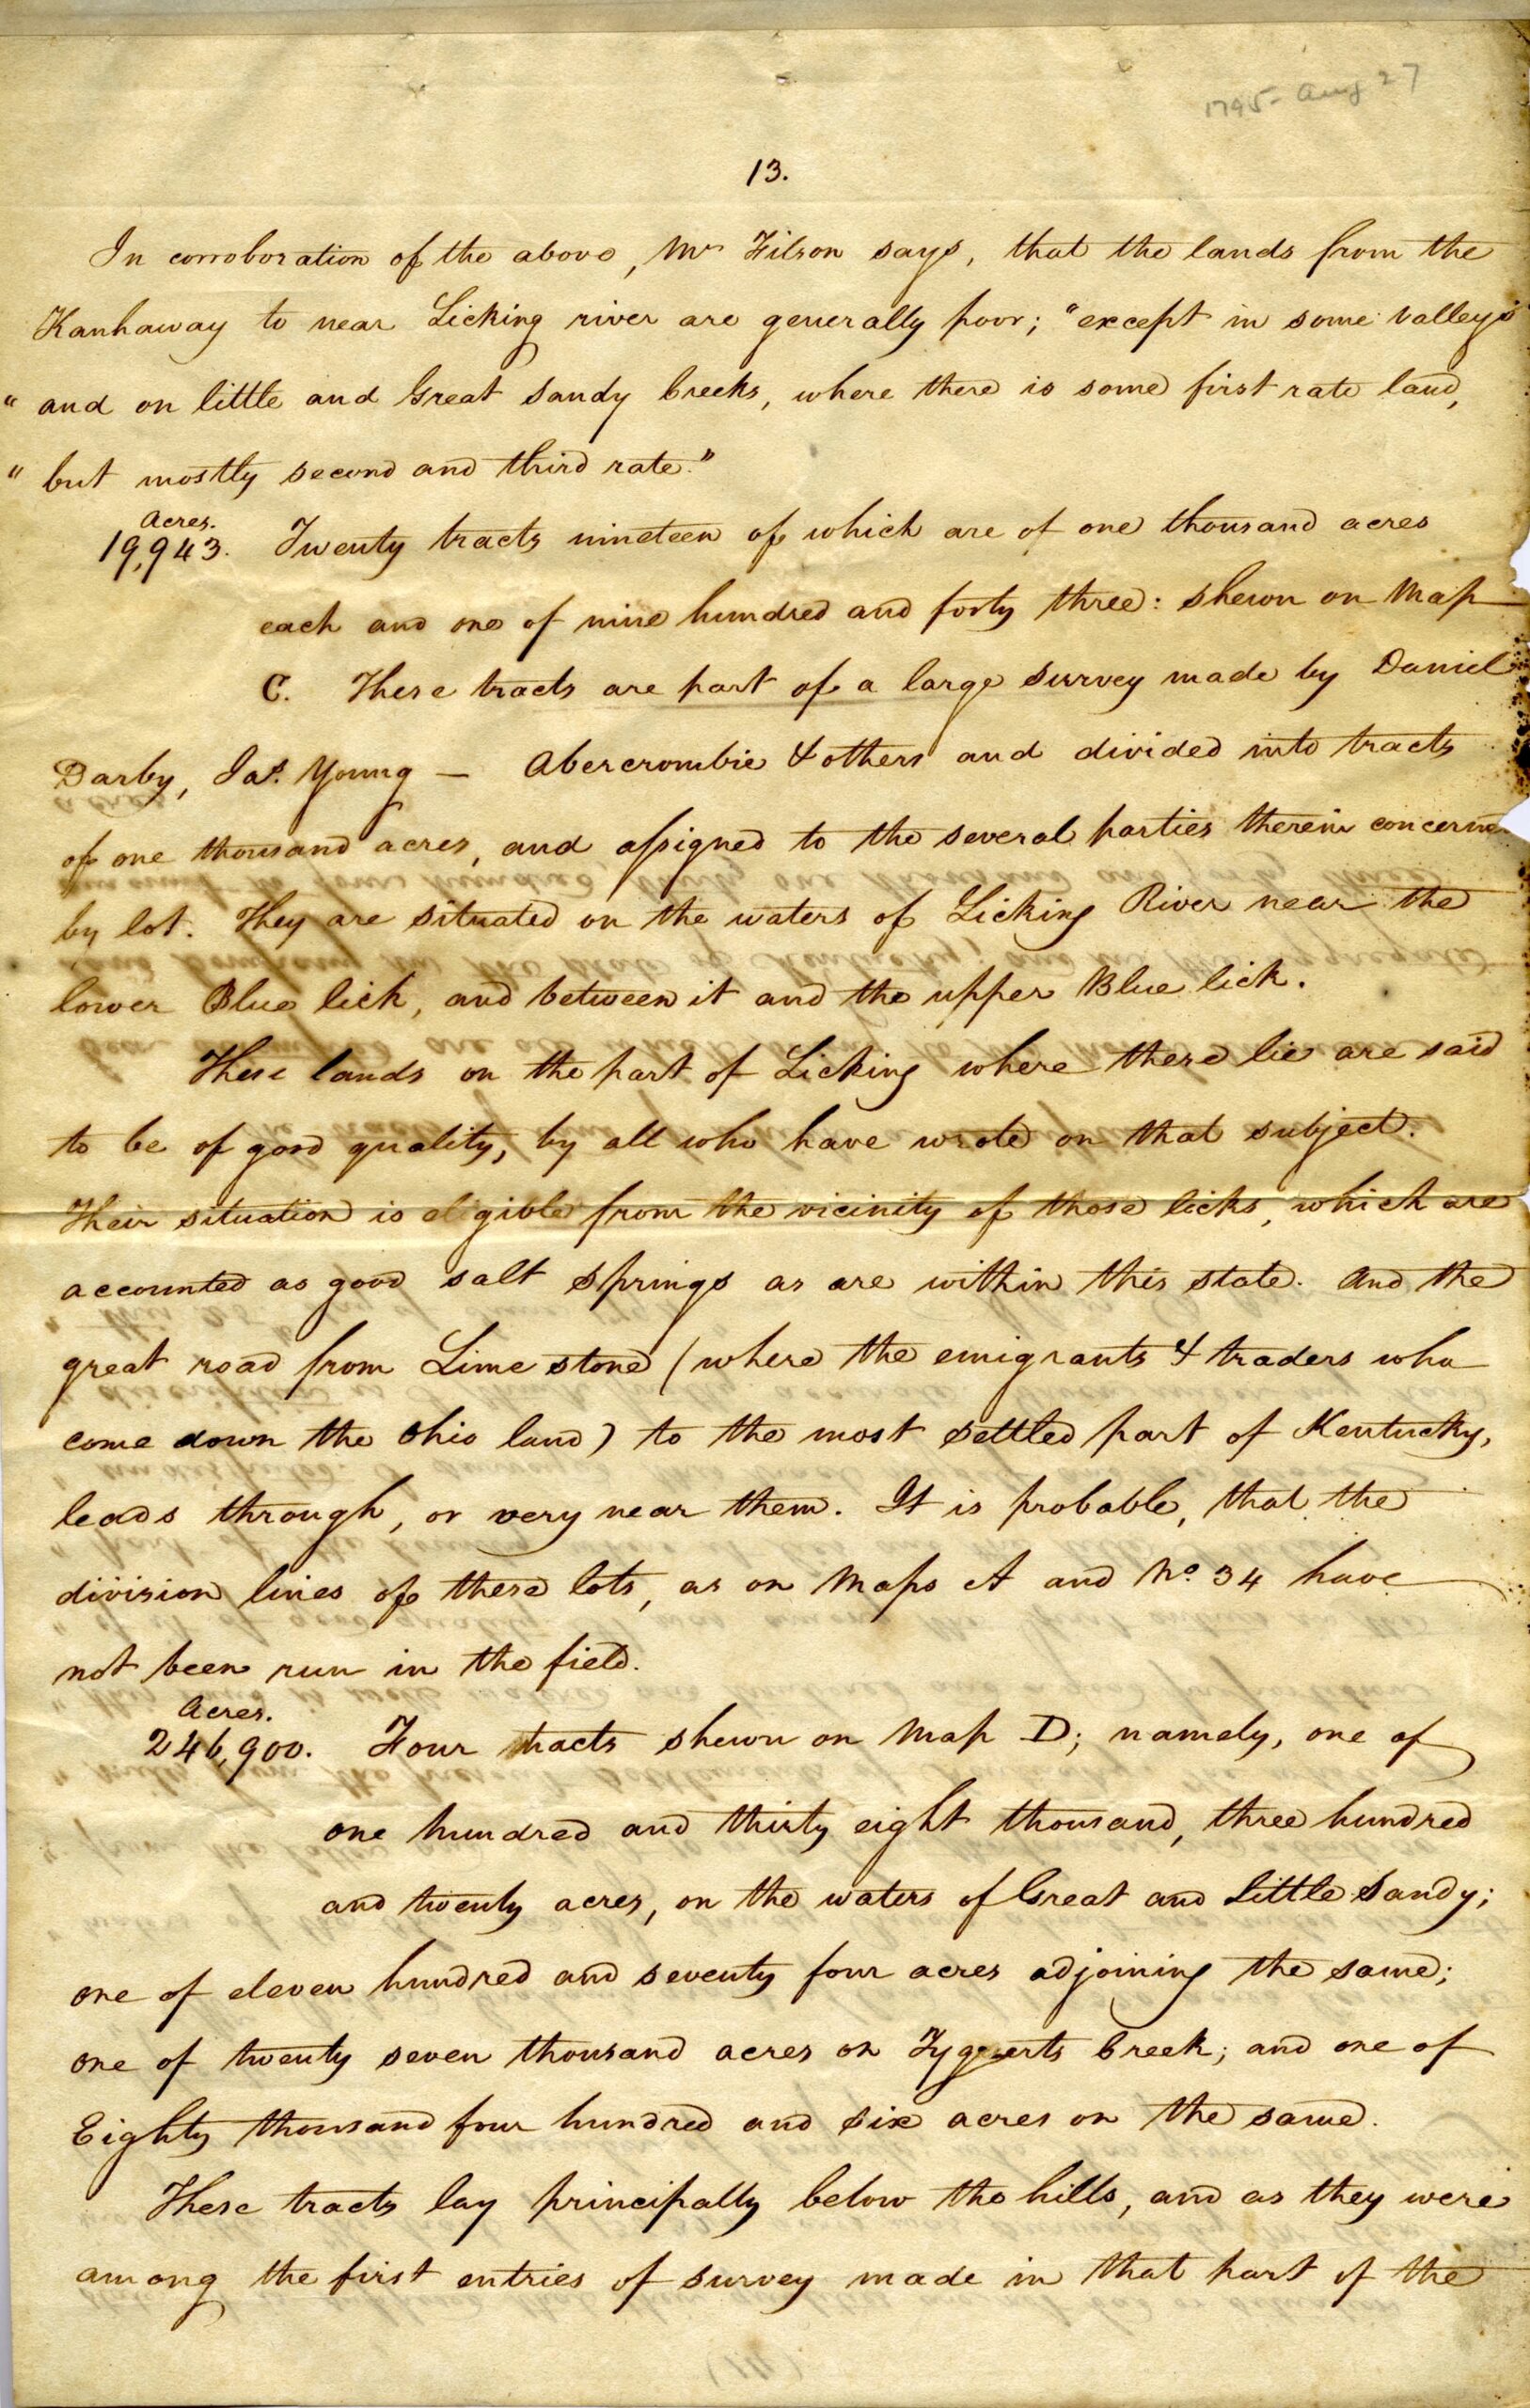 1795- Aug 27
13.
In corroboration of the above, Mr Filson says, that the lands from the
Kanhaway to near Licking river are generally poor; "except in some valleys
" and on little and Great Sandy Creeks, where there is some first rate land,
" but mostly second and third rate."
Acres.
19,943. Twenty tracts nineteen of which are of one thousand acres
each and one of nine hundred and forty three: shewn on Map
C. These tracts are part of a large survey made by Daniel
Darby, Jas. Young — Abercrombie & others and divided into tracts
of one thousand acres, and assigned to the several parties therein concerne
by lot. They are situated on the waters of Licking River near the
lower Blue lick, and between it and the upper Blue lick.
These lands on the part of Licking where these lie are said
to be of good quality, by all who have wrote on that subject.
Their situation is eligible from the vicinity of those licks, which are
accounted as good salt springs as are within this state. And the
great road from Lime stone (where the emigrants & traders who
come down the Ohio land) to the most settled part of Kentucky,
leads through, or very near them. It is probable, that the
division lines of these lots, as on Maps A and No. 34 have
not been run in the field.
Acres.
246,900. Four tracts shewn on Map D; namely, one of
one hundred and thirty eight thousand, three hundred
and twenty acres, on the waters of Great and Little Sandy;
one of eleven hundred and seventy four acres adjoining the same;
one of twenty seven thousand acres on Tygerts Creek; and one of
Eighty thousand four hundred and six acres on the same.
These tracts lay principally below the hills, and as they were
among the first entries of survey made in that part of the